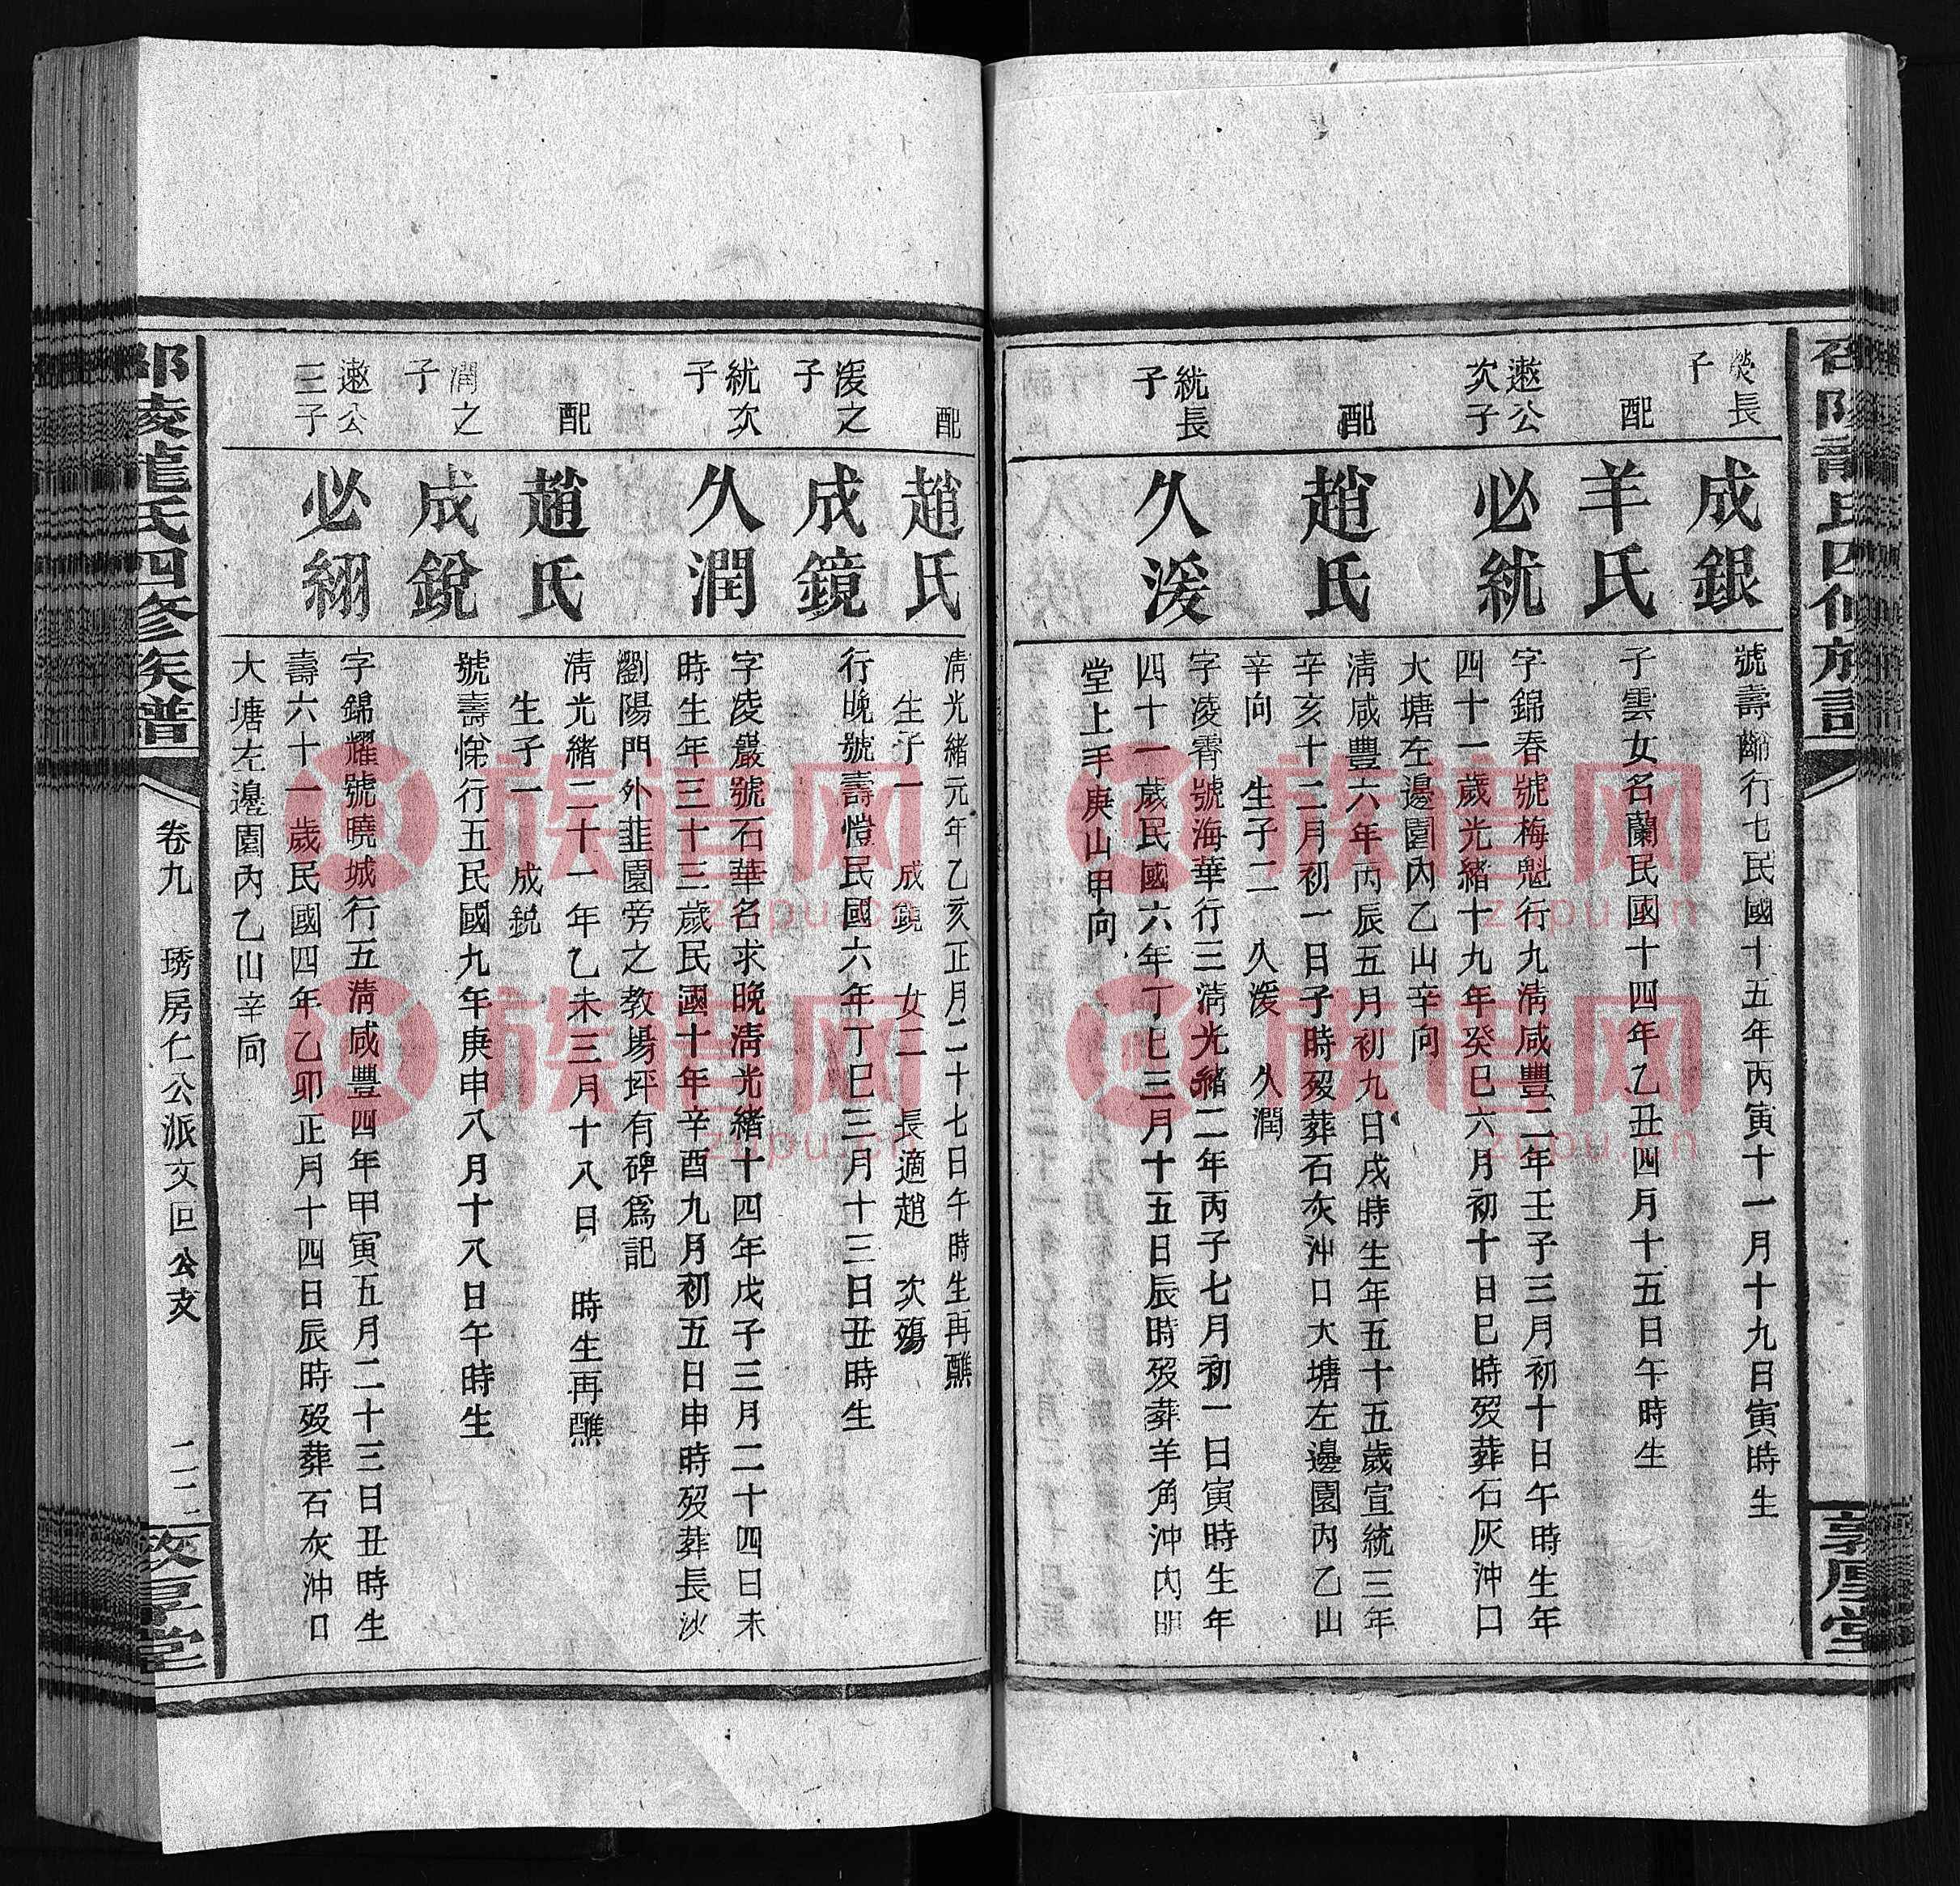 熒長
子
成銀
號壽黼行七民國十五年丙寅十一月十九日寅時生
配
羊氏
子雲女名蘭民國十四年乙丑四月十五日午時生
遬公
次子
必紞
字錦春號梅魁行九清咸豐二年壬子三月初十日午時生年
四十一歲光緒十九年癸巳六月初十日巳時歿葬石灰沖口
大塘左邊園內乙山辛向
配
趙氏
清咸豐六年丙辰五月初九日戌時生年五十五歲宣統三年
辛亥十二月初一日子時歿葬石灰沖口大塘左邊園內乙山
辛向 生子二 久湲 久潤
紞長
子
久湲
字凌霄號海華行三清光緒二年丙子七月初一日寅時生年
四十一歲民國六年丁巳三月十五日辰時歿葬羊角沖內
堂上手庚山甲向
配
趙氏
清光緒元年乙亥正月二十七日午時生再醮
生子一 成鏡 女二 長適趙 次殤
湲之
子
成鏡
行晚號壽愷民國六年丁巳三月十三日丑時生
紞次
子
久潤
字凌嚴號石華名求晚清光緒十四年戊子三月二十四日未
時生年三十三歲民國十年辛酉九月初五日申時歿葬長沙
瀏陽門外韭園旁之教場坪有碑爲記
配
趙氏
清光緒二十一年乙未三月十八日 時生再醮
生子一 成銳
潤之
子
成銳
號壽悌行五民國九年庚申八月十八日午時生
遬公
三子
必絧
字錦耀號曉城行五清咸豐四年甲寅五月二十三日丑時生
壽六十一歲民國四年乙卯正月十四日辰時歿葬石灰沖口
大塘左邊園內乙山辛向
邵陵龍氏四修族譜
卷九 琇房仁公派文回公支
二二
敦厚堂
族谱网
zupu.cn
族谱网
zupu.cn
族谱网
zupu.cn
族谱网
zupu.cn